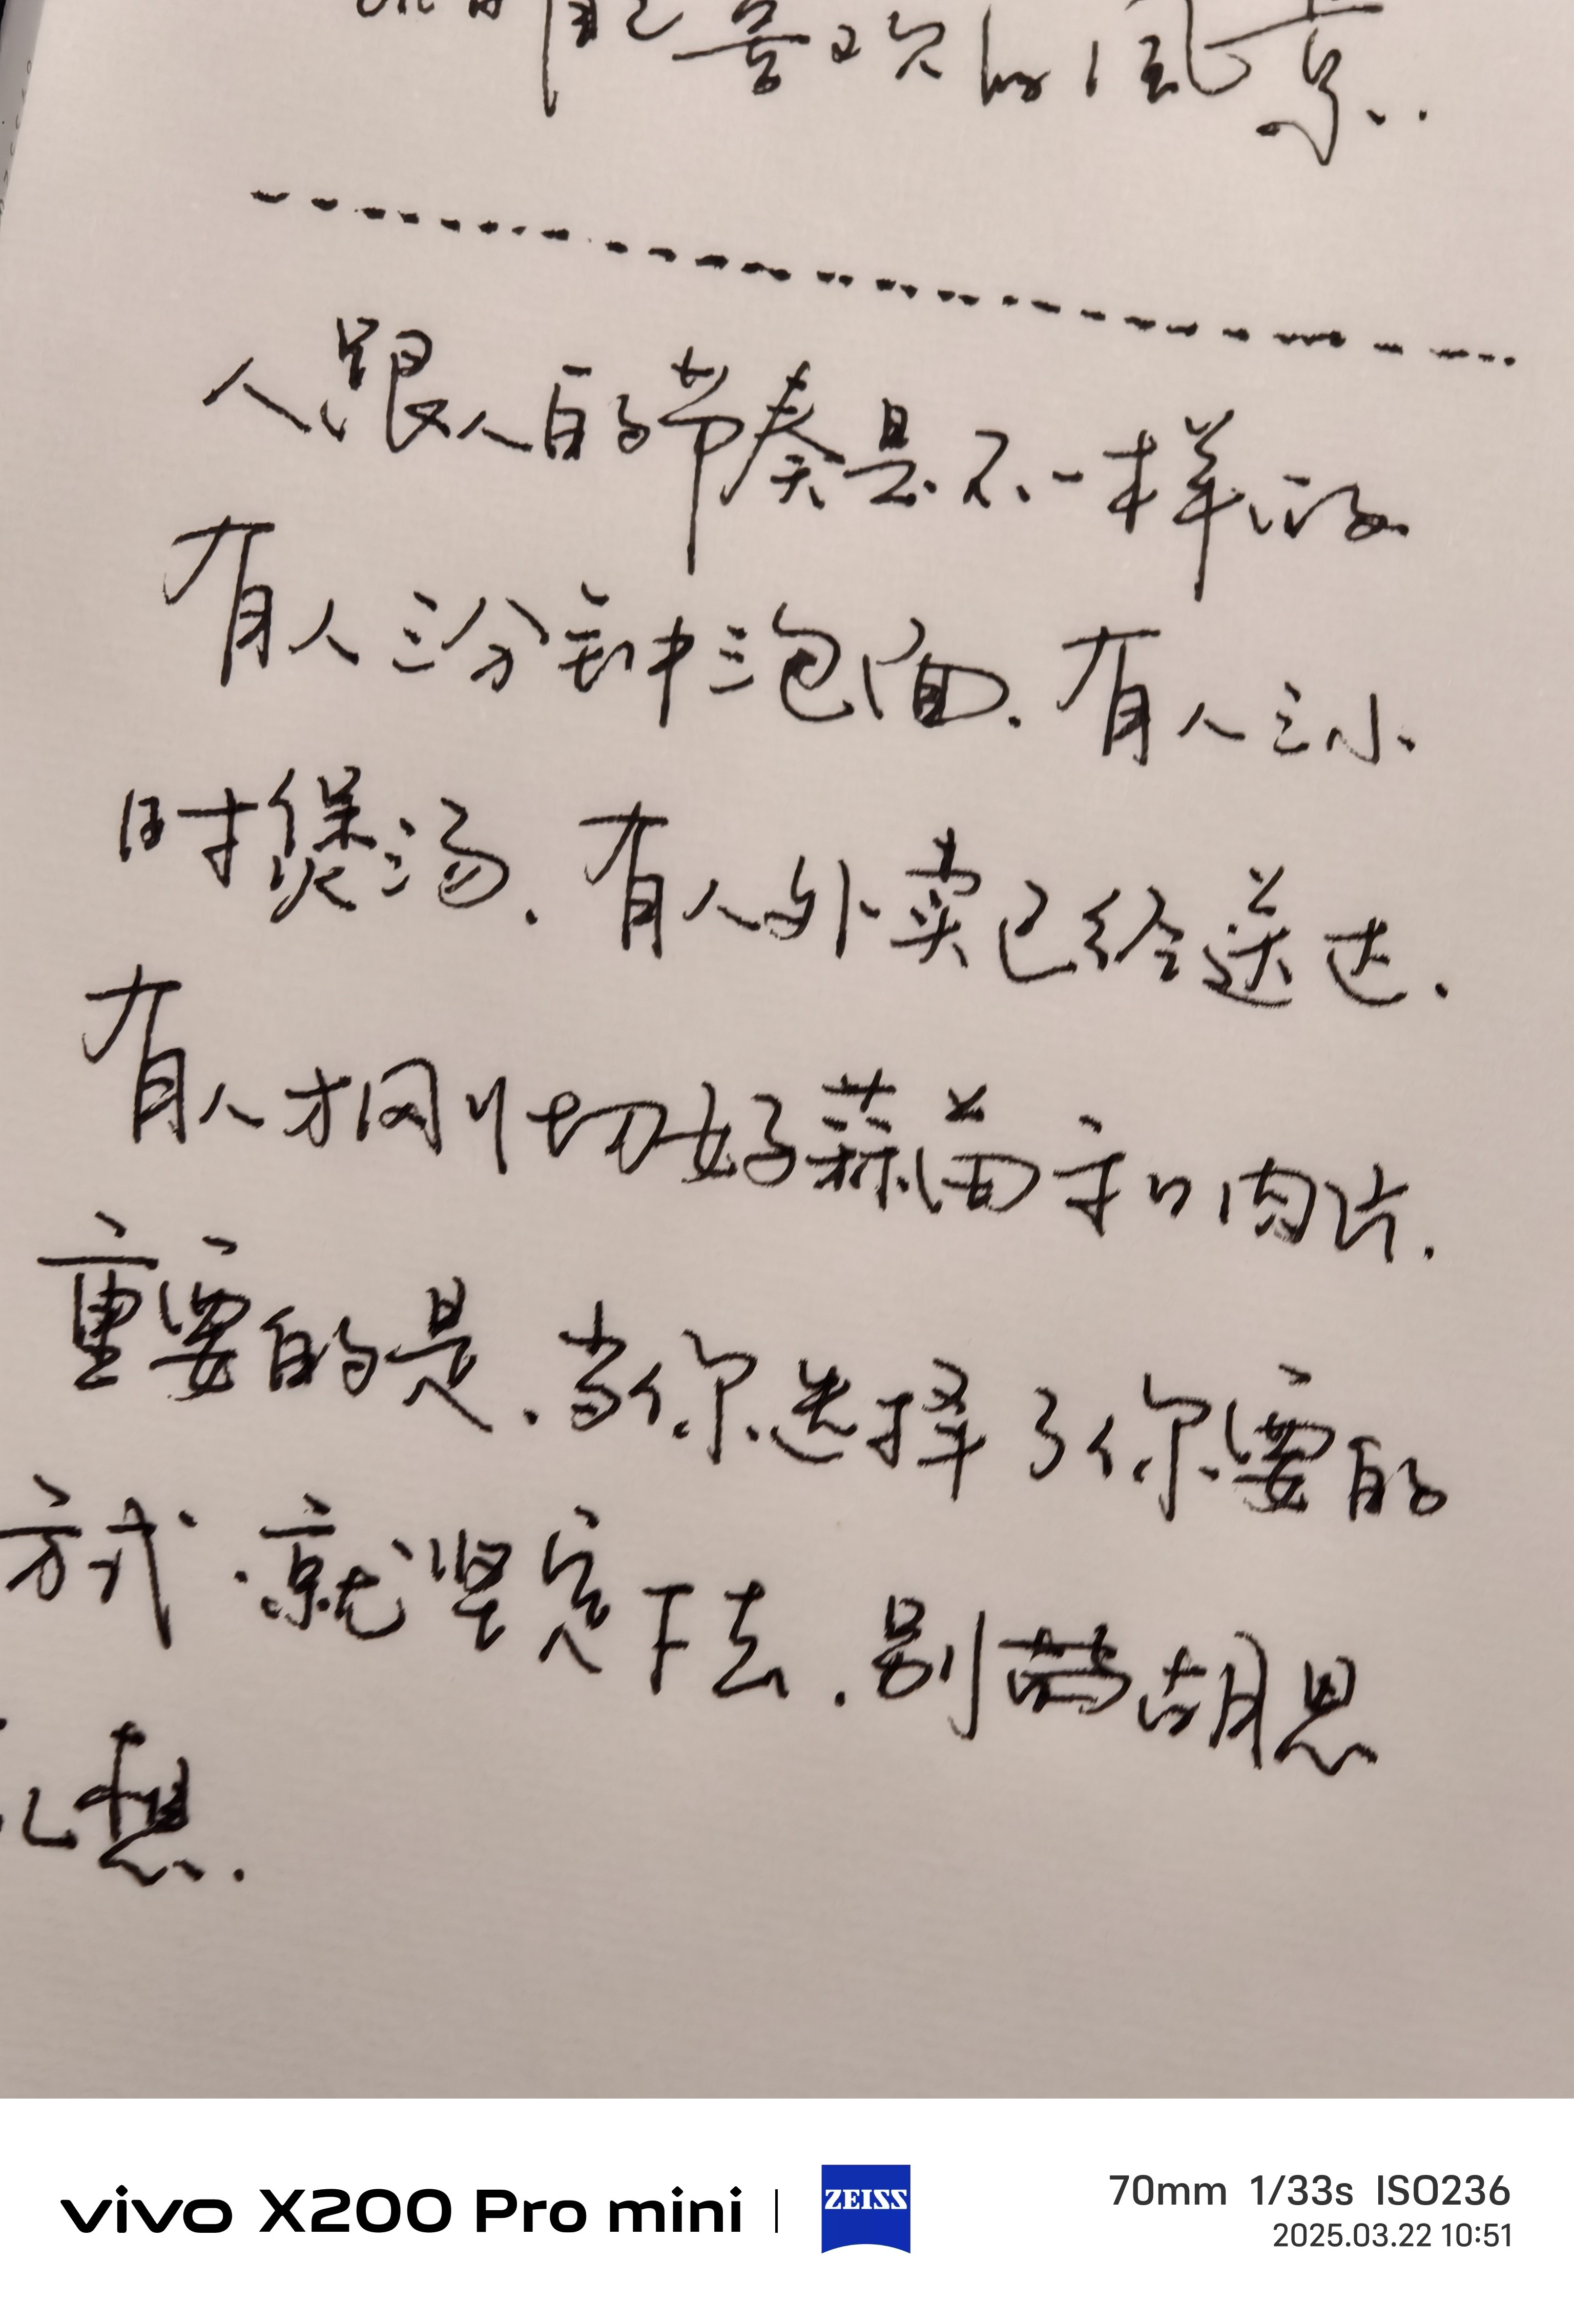 喜欢的风景..
人跟人的节奏是不一样的
有人三分钟泡面.有人三小
时煲汤.有人外卖已经送达.
有人才刚切好蒜苗和肉片.
重要的是.当你选择了你要的
方式.就坚定下去.别带胡思
乱想.
vivo X200 Pro mini | ZEISS
70mm 1/33s ISO236
2025.03.22 10:51